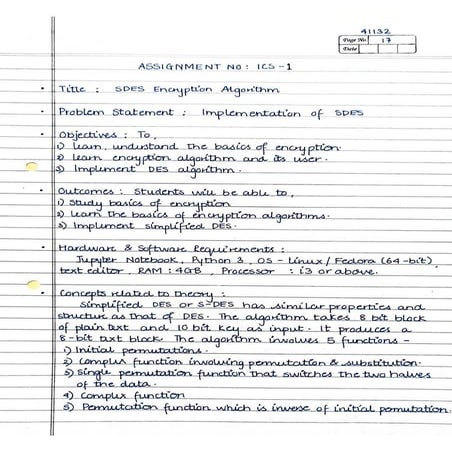 41132
Page No. 17
Date
ASSIGNMENT NO : ICS - 1
• Title : SDES Encryption Algorithm
• Problem Statement : Implementation of SDES
• Objectives : To,
1) Learn, understand the basics of encryption.
2) Learn encryption algorithm and its user.
3) Implement DES algorithm.
• Outcomes : Students will be able to,
1) Study basics of encryption
2) Learn the basics of encryption algorithms.
3) Implement simplified DES.
• Hardware & Software Requirements :
Jupyter Notebook, Python 3, OS - Linux / Fedora (64-bit),
text editor, RAM : 4GB, Processor : i3 or above.
• Concepts related to theory :
Simplified DES or S-DES has similar properties and
structure as that of DES. The algorithm takes 8 bit block
of plain text and 10 bit key as input. It produces a
8-bit text block. The algorithm involves 5 functions -
1) Initial permutations.
2) Complex function involving permutation & substitution.
3) Single permutation function that switches the two halves
of the data.
4) Complex function
5) Permutation function which is inverse of initial permutation.